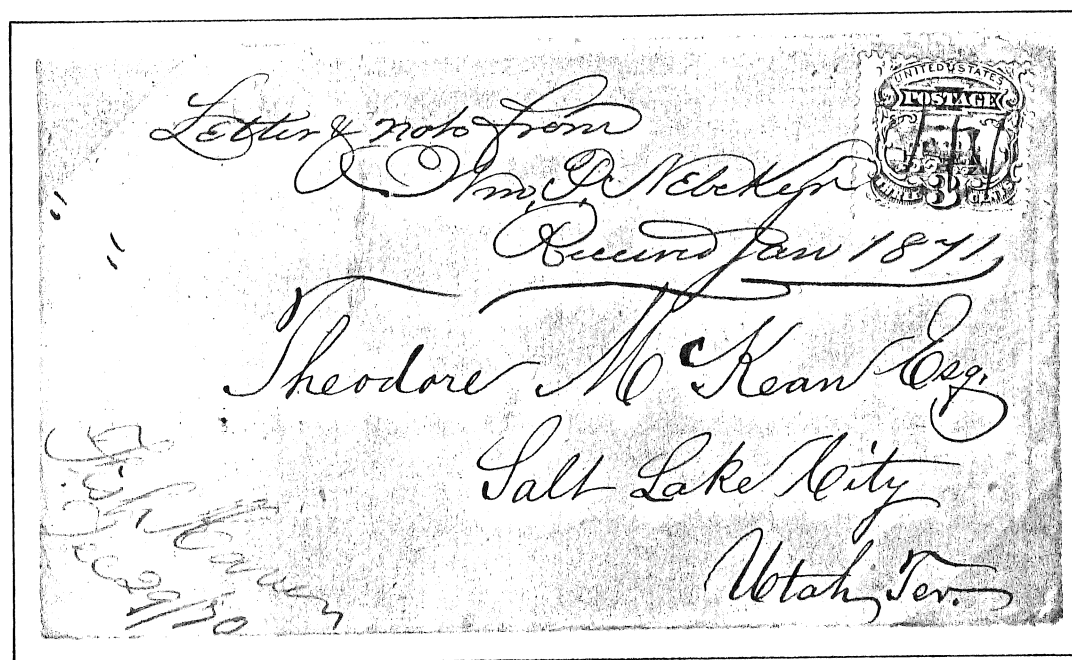 UNITED STATES
POSTAGE
3
CENTS
Letter & note from
Wm. P. Nebeker
Received Jan 1871,
Theodore McKean Esq.
Salt Lake City
Utah, Ter.
Fish Haven
Dec 29/70